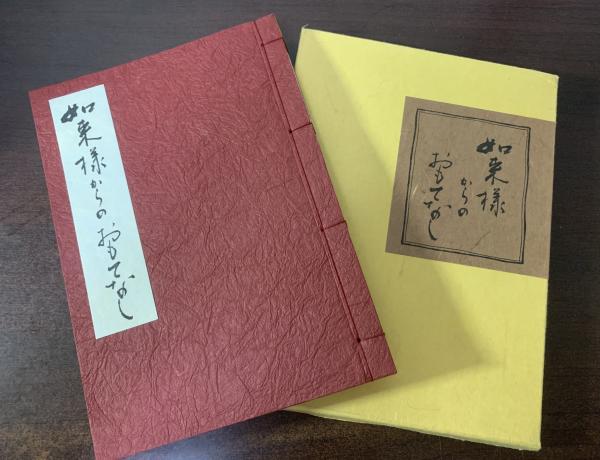 如来様からのおもてなし
如来様
からの
おもてなし